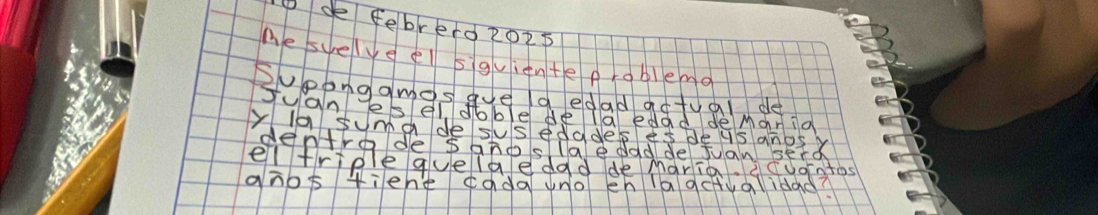 10 de febrero 2025
Resuelve el siguiente problema
Supongamos que la edad actual de
Juan es el doble de la edad de María
y la suma de sus edades es de 45 años y
dentro de 5 años la edad de Juan será
el triple que la edad de María. ¿Cuántos
años tiene cada uno en la actualidad?